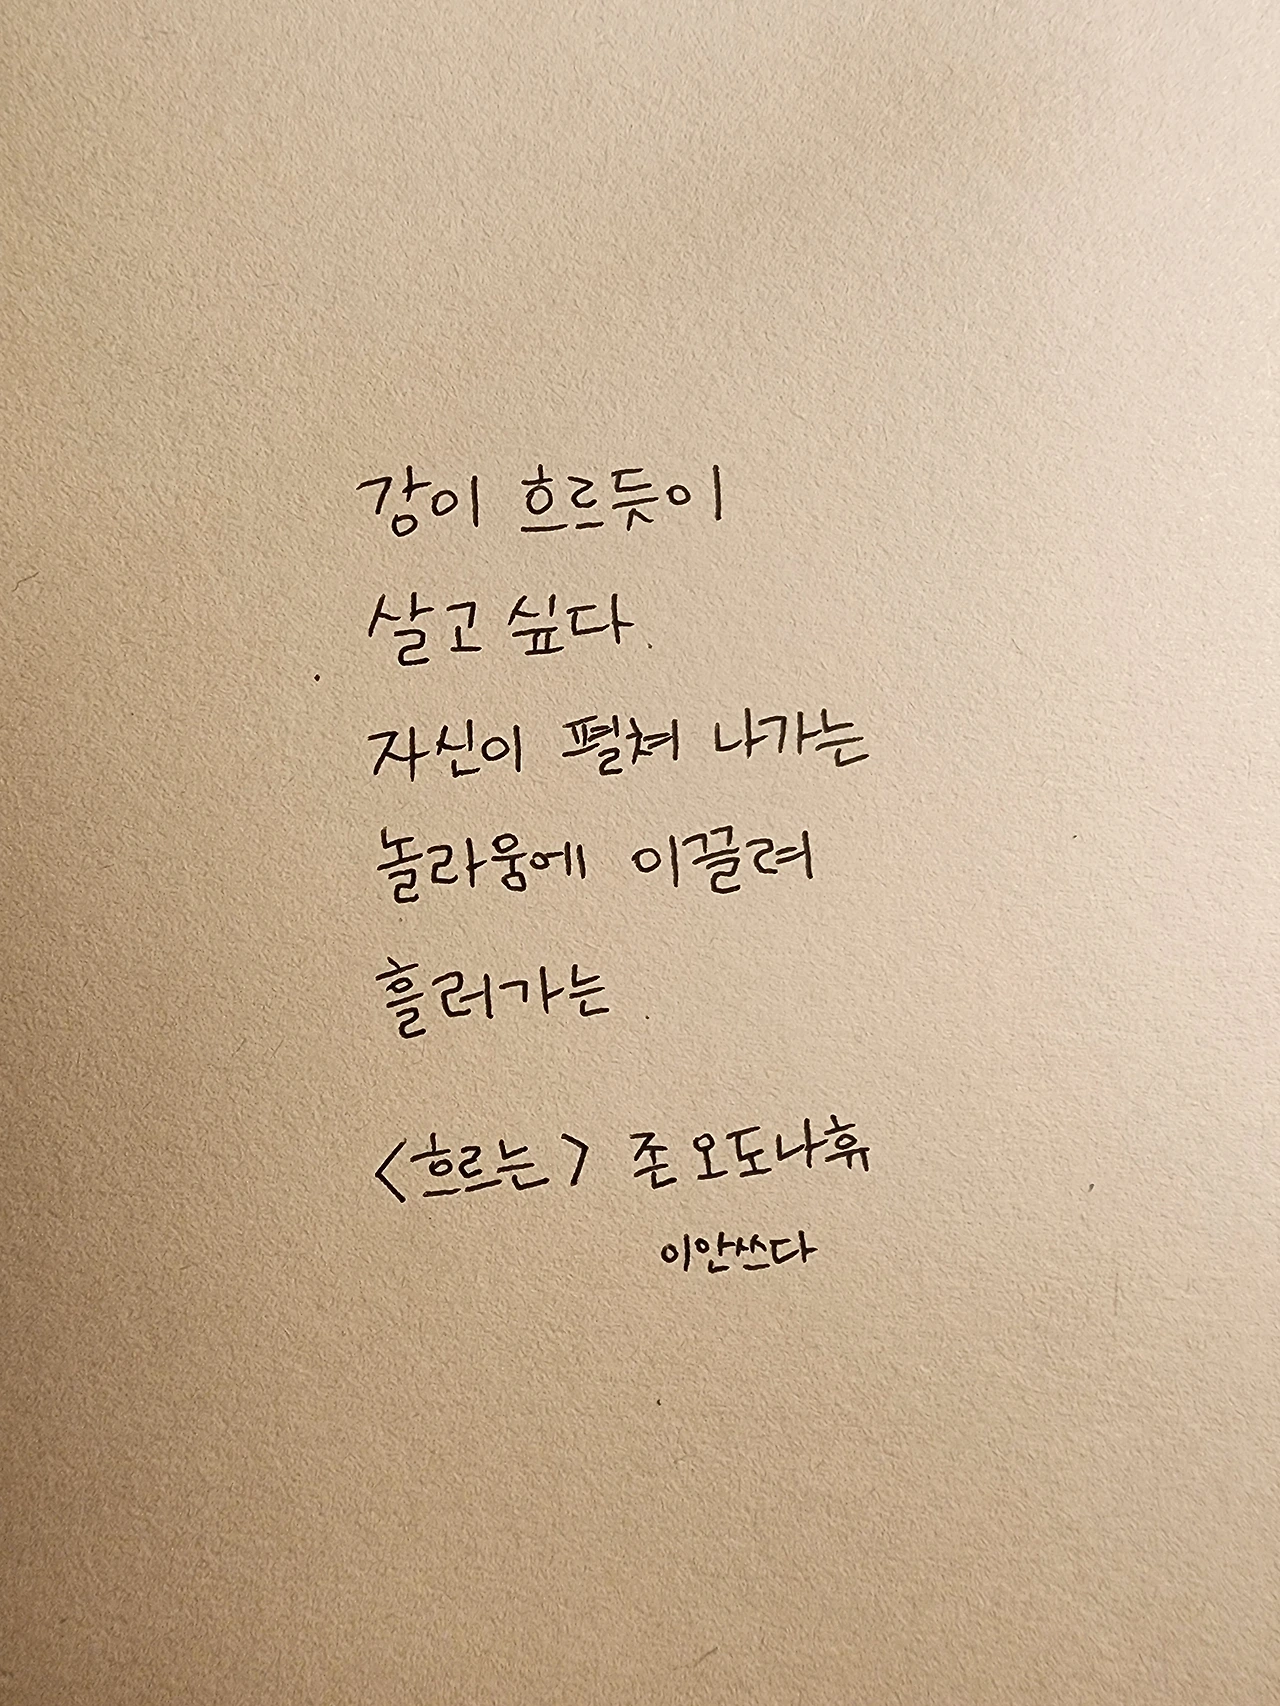 강이 흐르듯이
살고 싶다
자신이 펼쳐 나가는
놀라움에 이끌려
흘러가는
<흐르는> 존 오도나휴
이안쓰다